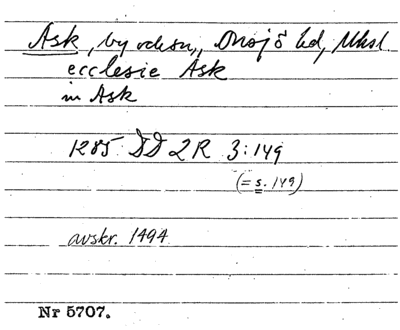 Ask, by o. kson, Onsjö hd, Mhsl.
ecclesie Ask
in Ask
1285 DD 2R 3:149
(= s. 149)
avskr. 1494
Nr 5707.